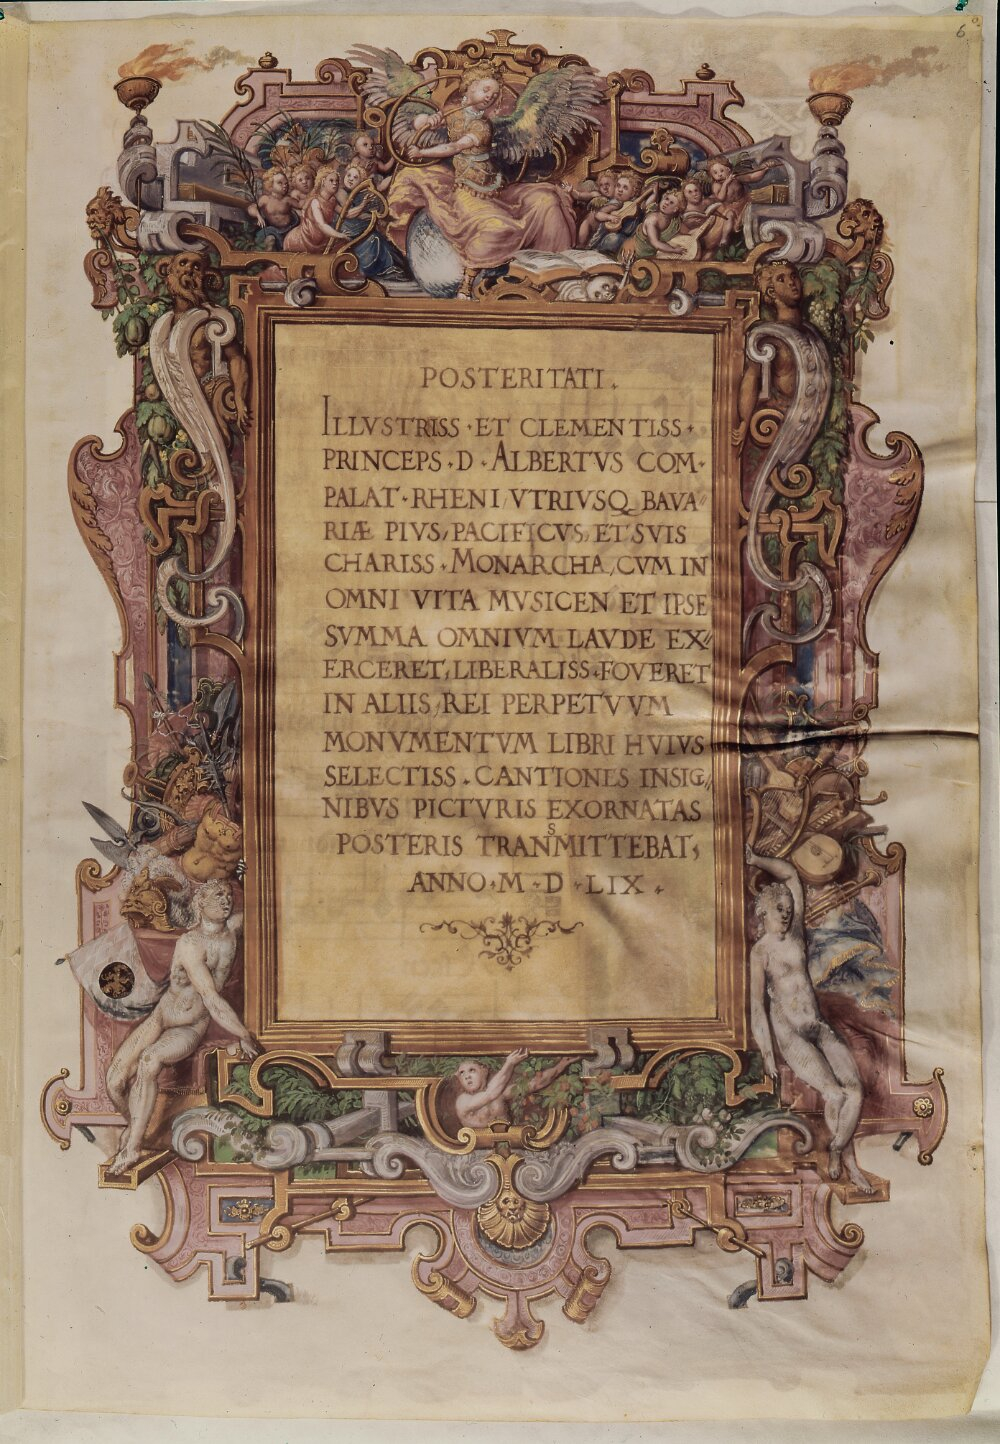 6
POSTERITATI.
ILLVSTRISS · ET CLEMENTISS ·
PRINCEPS · D · ALBERTVS COM·
PALAT · RHENI / VTRIVSQ BAVA//
RIÆ PIVS, PACIFICVS, ET SVIS
CHARISS · MONARCHA, CVM IN
OMNI VITA MVSICEN ET IPSE
SVMMA OMNIVM LAVDE EX//
ERCERET, LIBERALISS · FOVERET
IN ALIIS, REI PERPETVVM
MONVMENTVM LIBRI HVIVS
SELECTISS · CANTIONES INSIG//
NIBVS PICTVRIS EXORNATAS
POSTERIS TRANSMITTEBAT,
ANNO · M · D · LIX ·